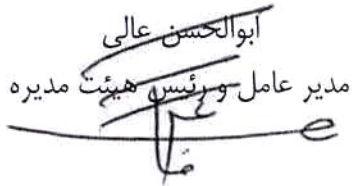 ابوالحسن عالی
مدیر عامل و رئیس هیئت مدیره